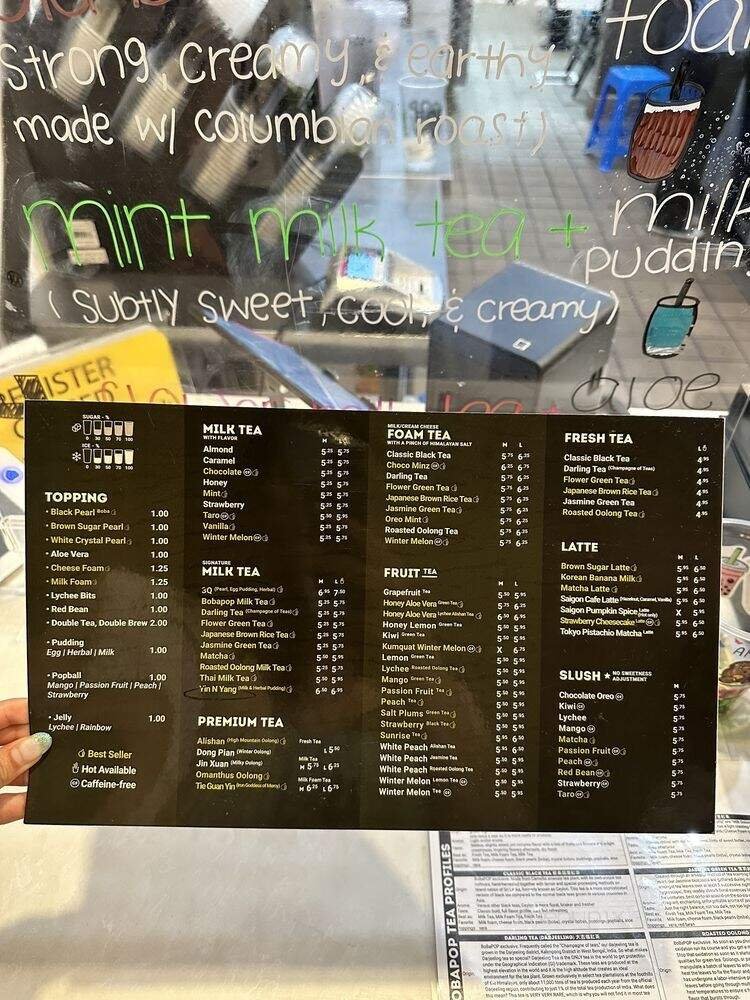 strong, creamy, & earthy
made w/ columbian roast)
mint milk tea +
milk
pudding
(subtly sweet, cool, & creamy)
aloe
SUGAR - %
0 30 50 70 100
ICE - %
0 30 50 80 100
TOPPING
• Black Pearl Boba 1.00
• Brown Sugar Pearl 1.00
• White Crystal Pearl 1.00
• Aloe Vera 1.00
• Cheese Foam 1.25
• Milk Foam 1.25
• Lychee Bits 1.00
• Red Bean 1.00
• Double Tea, Double Brew 2.00
• Pudding 1.00
Egg | Herbal | Milk
• Popball 1.00
Mango | Passion Fruit | Peach |
Strawberry
• Jelly 1.00
Lychee | Rainbow
Best Seller
Hot Available
Caffeine-free
MILK TEA
WITH FLAVOR
M L
Almond 5.25 5.75
Caramel 5.25 5.75
Chocolate 5.25 5.75
Honey 5.25 5.75
Mint 5.25 5.75
Strawberry 5.25 5.75
Taro 5.50 5.95
Vanilla 5.25 5.75
Winter Melon 5.25 5.75
SIGNATURE
MILK TEA
M L
3Q (Pearl, Egg Pudding, Herbal) 6.95 7.50
Bobapop Milk Tea 5.25 5.75
Darling Tea (Champagne of Teas) 5.25 5.75
Flower Green Tea 5.25 5.75
Japanese Brown Rice Tea 5.25 5.75
Jasmine Green Tea 5.25 5.75
Matcha 5.50 5.95
Roasted Oolong Milk Tea 5.25 5.75
Thai Milk Tea 5.50 5.95
Yin N Yang (Milk & Herbal Pudding) 6.50 6.95
PREMIUM TEA
Alishan (High Mountain Oolong)
Dong Pian (Winter Oolong)
Jin Xuan (Milky Oolong)
Omanthus Oolong
Tie Guan Yin (Iron Goddess of Mercy)
Fresh Tea
L 5.50
Milk Tea
M 5.75 L 6.25
Milk Foam Tea
M 6.25 L 6.75
MILK/CREAM CHEESE
FOAM TEA
WITH A PINCH OF HIMALAYAN SALT
M L
Classic Black Tea 5.75 6.25
Choco Minz 6.25 6.75
Darling Tea 5.75 6.25
Flower Green Tea 5.75 6.25
Japanese Brown Rice Tea 5.75 6.25
Jasmine Green Tea 5.75 6.25
Oreo Mint 6.25 6.75
Roasted Oolong Tea 5.75 6.25
Winter Melon 5.75 6.25
FRUIT TEA
M L
Grapefruit Tea 5.50 5.95
Honey Aloe Vera Green Tea 5.75 6.25
Honey Aloe Vera Lychee Alishan Tea 6.50 6.95
Honey Lemon Green Tea 5.50 5.95
Kiwi Green Tea 5.50 5.95
Kumquat Winter Melon X 6.75
Lemon Green Tea 5.50 5.95
Lychee Roasted Oolong Tea 5.50 5.95
Mango Green Tea 5.50 5.95
Passion Fruit Tea 5.50 5.95
Peach Tea 5.50 5.95
Salt Plums Green Tea 5.50 5.95
Strawberry Black Tea 5.50 5.95
Sunrise Tea 5.95 6.50
White Peach Alishan Tea 5.95 6.50
White Peach Jasmine Tea 5.50 5.95
White Peach Roasted Oolong Tea 5.50 5.95
Winter Melon Lemon Tea 5.50 5.95
Winter Melon Tea 5.50 5.95
FRESH TEA
L
Classic Black Tea 4.95
Darling Tea (Champagne of Teas) 4.95
Flower Green Tea 4.95
Japanese Brown Rice Tea 4.95
Jasmine Green Tea 4.95
Roasted Oolong Tea 4.95
LATTE
M L
Brown Sugar Latte 5.95 6.50
Korean Banana Milk 5.95 6.50
Matcha Latte 5.95 6.50
Saigon Cafe Latte (Hazelnut, Caramel, Vanilla) 5.95 6.50
Saigon Pumpkin Spice Latte (Hot only) X 5.95
Strawberry Cheesecake Latte 5.95 6.50
Tokyo Pistachio Matcha Latte 5.95 6.50
SLUSH * NO SWEETNESS
ADJUSTMENT
M
Chocolate Oreo 5.75
Kiwi 5.75
Lychee 5.75
Mango 5.75
Matcha 5.75
Passion Fruit 5.75
Peach 5.75
Red Bean 5.75
Strawberry 5.75
Taro 5.75
BOBAPOP TEA PROFILES
CLASSIC BLACK TEA
DARLING TEA (DARJEELING)
ROASTED OOLONG